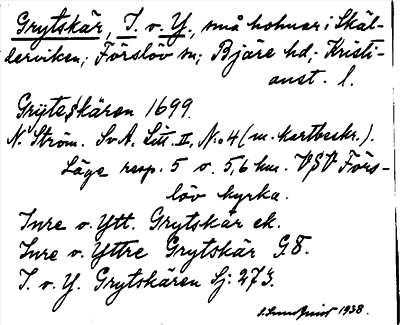 Grytskär, I. o. Y., små holmar i Skäl-
derviken; Förslöv sn; Bjäre hd; Kristi-
anst. l.
Gryteskären 1699.
N. Ström. SvA. Litt. II, N:o 4 (m. kartbeskr.).
Läge resp. 5 o. 5,6 km. VSV Förs-
löv kyrka.
Inre o. Ytt. Grytskär ek.
Inre o. Yttre Grytskär G8.
I. o. Y. Grytskären Sj: 273.
1938.